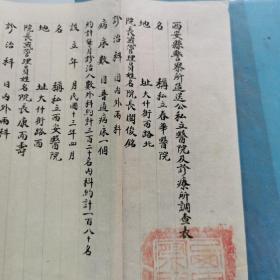 西安縣警察所區送公私立醫院及診療所調查表
名稱 私立春華醫院
地址 大什街西路北
院長或管理員姓名 院長 閻俊銘
診治科目 內外兩科
病床數目 普通病床一個
約計每月診治人數 外科約計三百二十名內科約計一百八十名
設立年月 民國十三年四月
名稱 私立西安醫院
地址 大什街路西
院長或管理員姓名 院長 康雨壽
診治科目 內外兩科